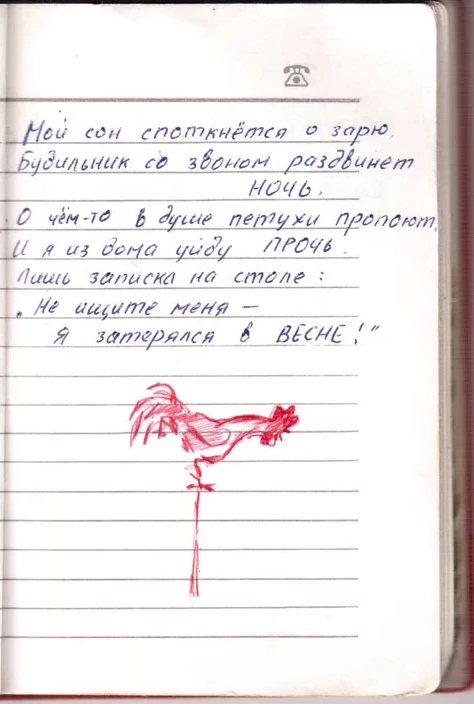 Мой сон споткнётся о зарю,
Будильник со звоном раздвинет
НОЧЬ.
О чём-то в душе петухи пропоют,
И я из дома уйду ПРОЧЬ.
Лишь записка на столе:
„Не ищите меня –
Я затерялся в ВЕСНЕ!"